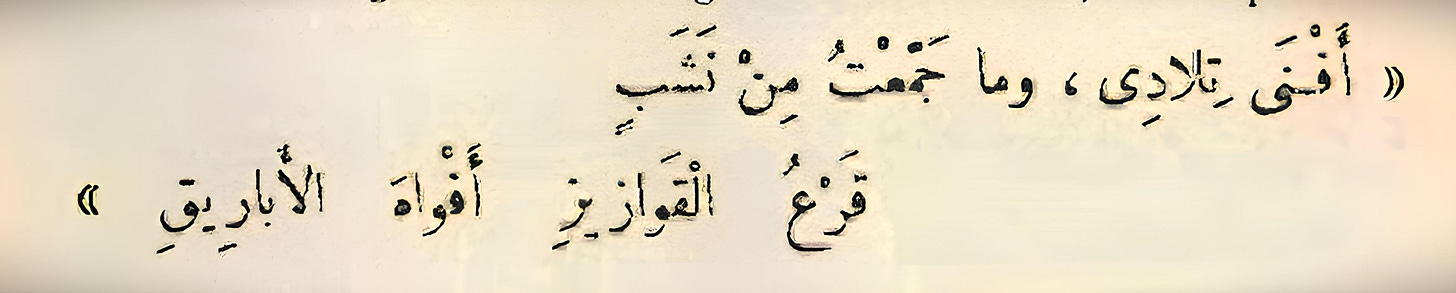 « أَفْنَى تِلادِى ، وما جَمَّعْتُ مِنْ نَشَبٍ
قَرْعُ الْقَوازِيزِ أَفْواهَ الأَبارِيقِ »